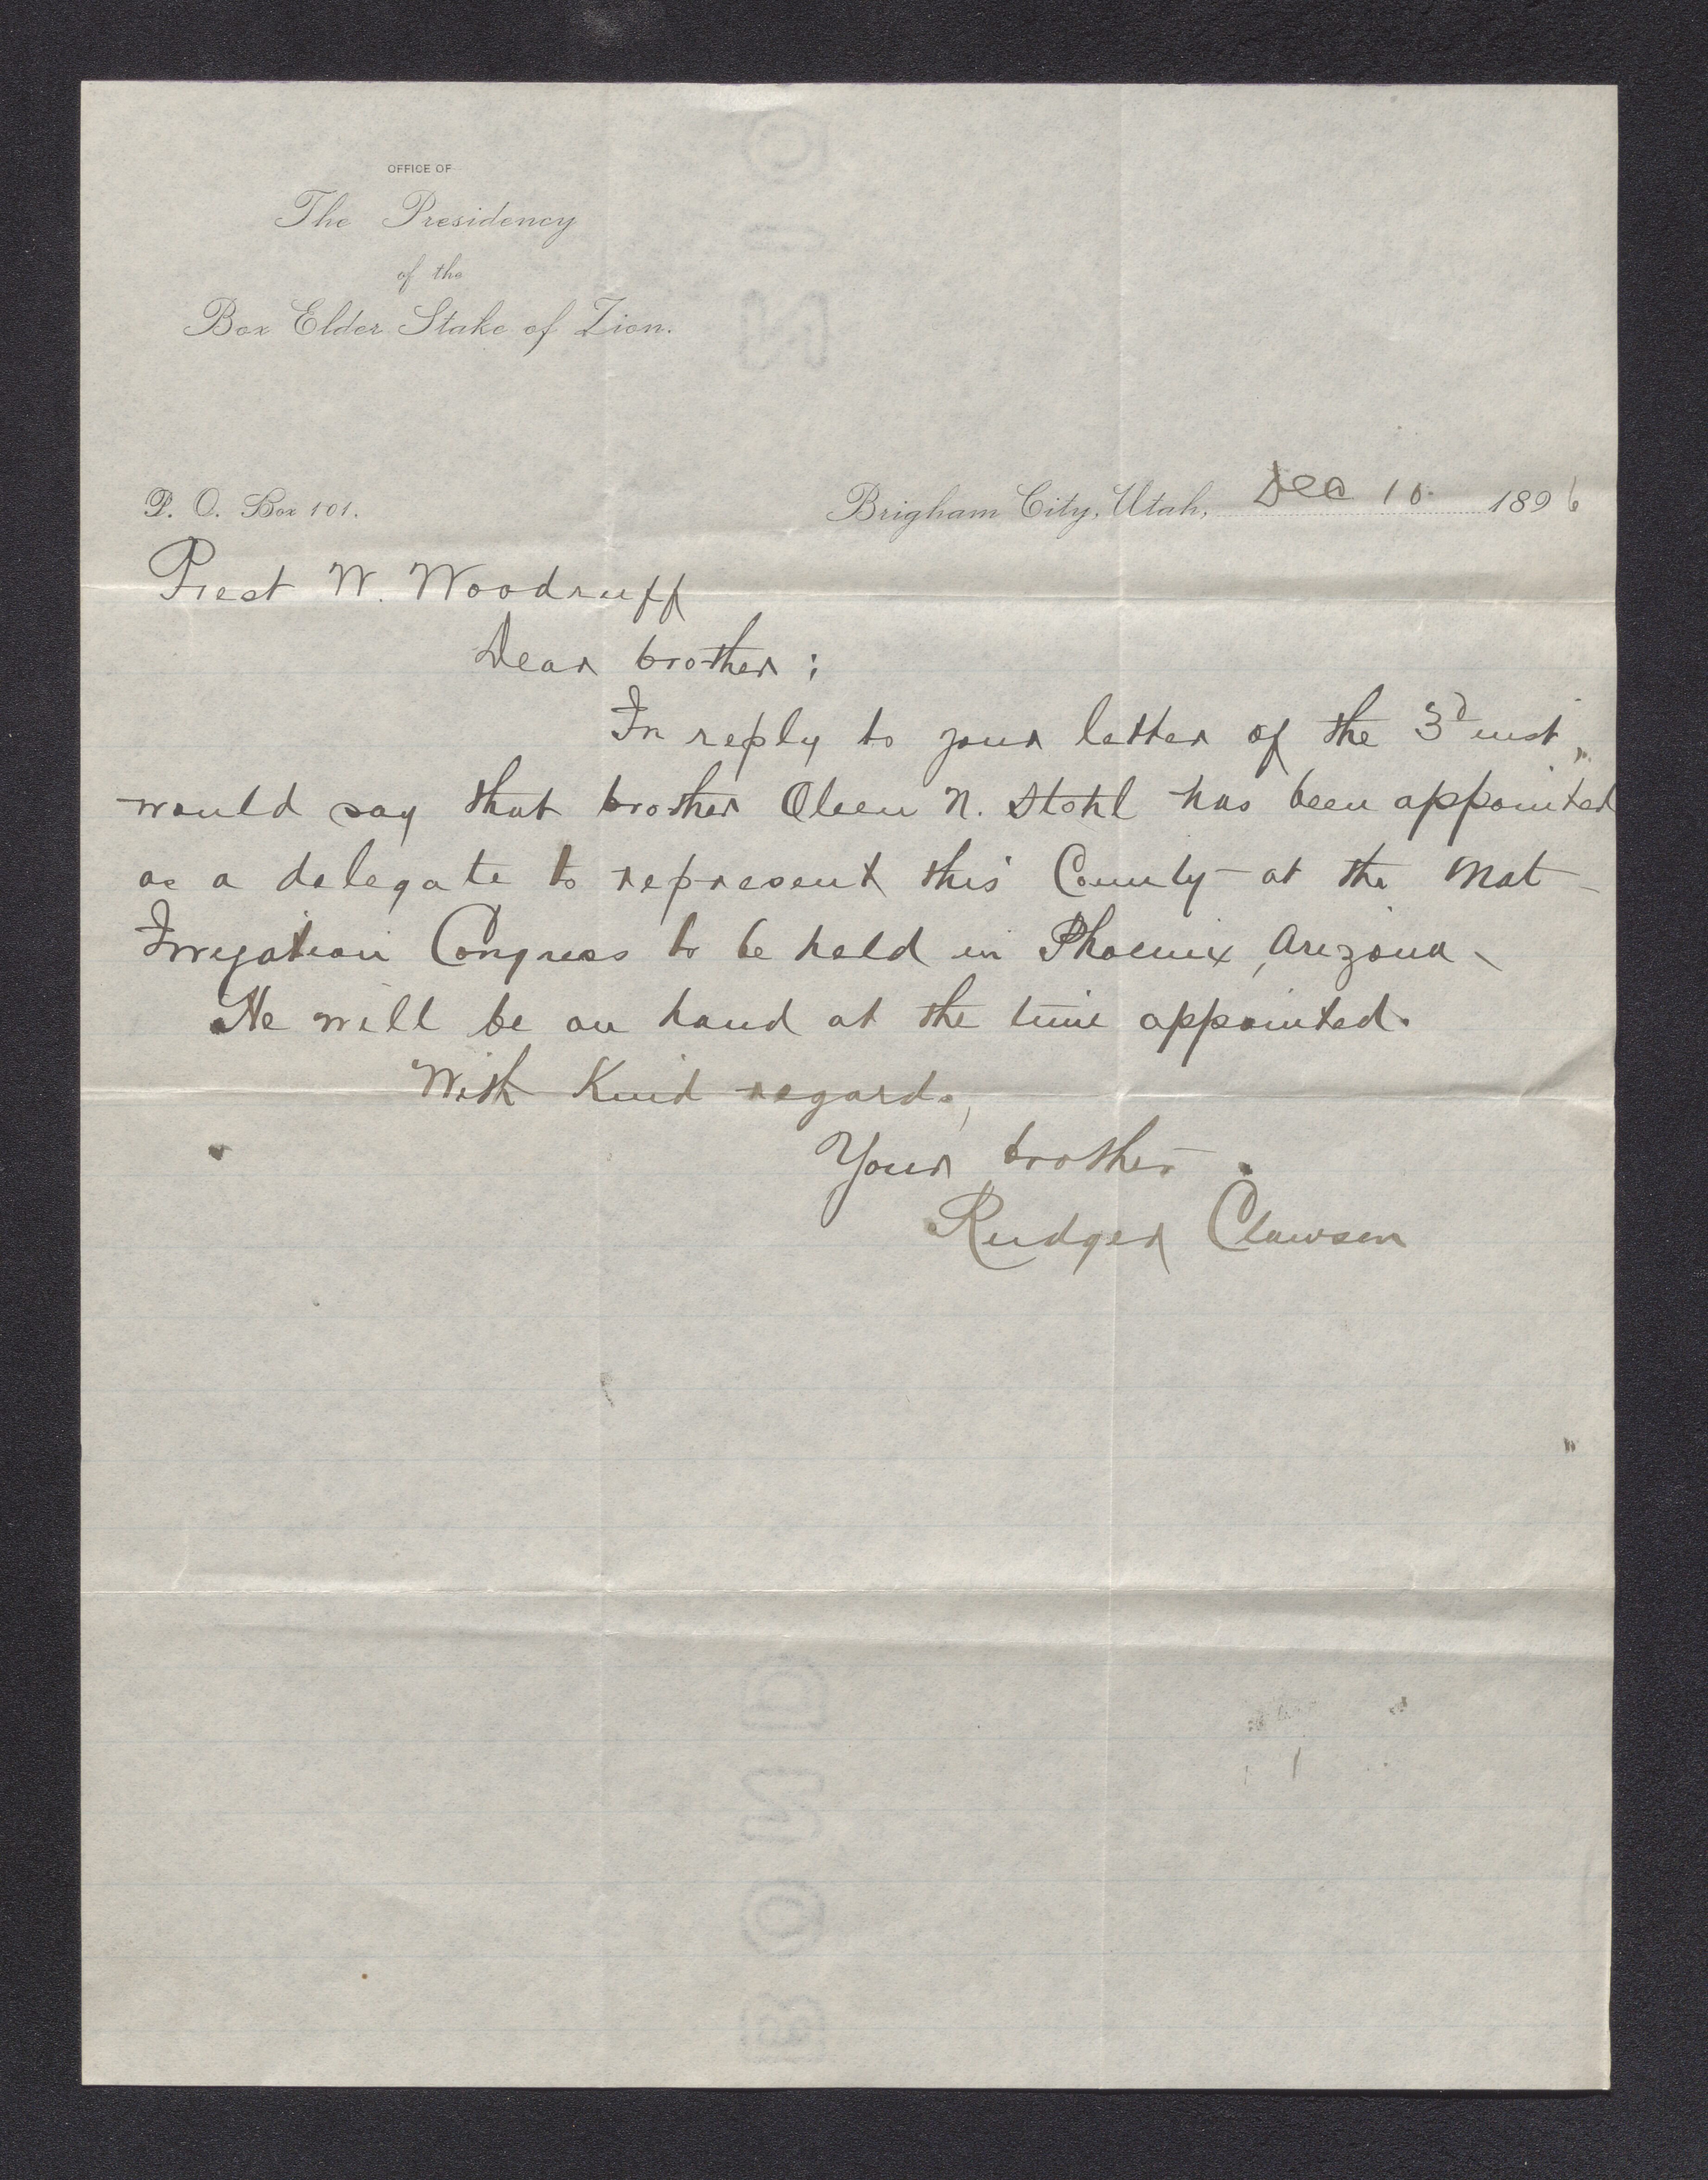 OFFICE OF
The Presidency
of the
Box Elder Stake of Zion.
P. O. Box 101.
Brigham City, Utah, Dec 10 1896
Prest W. Woodruff
Dear brother;
In reply to your letter of the 3d inst,
would say that brother Oleen N. Stohl has been appointed
as a delegate to represent this County at the Nat
Irrigation Congress to be held in Phoenix, Arizona
He will be on hand at the time appointed.
With Kind regards,
Your brother
Rudger Clawson
BOND